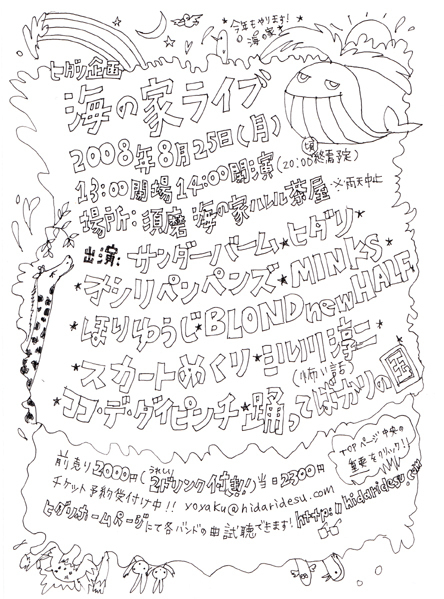 *今年もやります！
海の家を
ヒダリ企画
海の家ライブ
2008年8月25日(月)
13:00開場14:00開演(20:00頃終着予定)
場所: 須磨 海の家ハレルレ茶屋 ※雨天中止
出演: サンダーバーム★ヒダリ★
オシリペンペンズ★MINKS
★ほりゆうじ★BLONDnewHALF
★スカートめくり★ミルリ川淳二(怖い話)
★ココ・デ・ダイピンチ★踊ってばかりの国
前売り2000円(うれしい2ドリンク付!!)当日2300円
チケット予約受付け中!! yoyaku@hidaridesu.com
ヒダリホームページにて各バンドの曲試聴できます! http://hidaridesu.com/
TOPページ中央の
重要をクリック!!